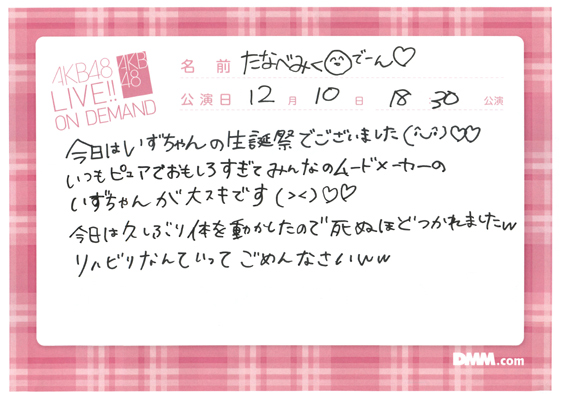 AKB48
LIVE!!
ON DEMAND
AKB
48
名前 たなべみく でーん♡
公演日 12月10日 18 30 公演
今日はいずちゃんの生誕祭でございました(^⌣^)♡♡
いつもピュアでおもしろすぎてみんなのムードメーカーの
いずちゃんが大スキです(><)♡♡
今日は久しぶり体を動かしたので死ぬほどつかれましたw
リハビリなんていってごめんなさいww
DMM.com